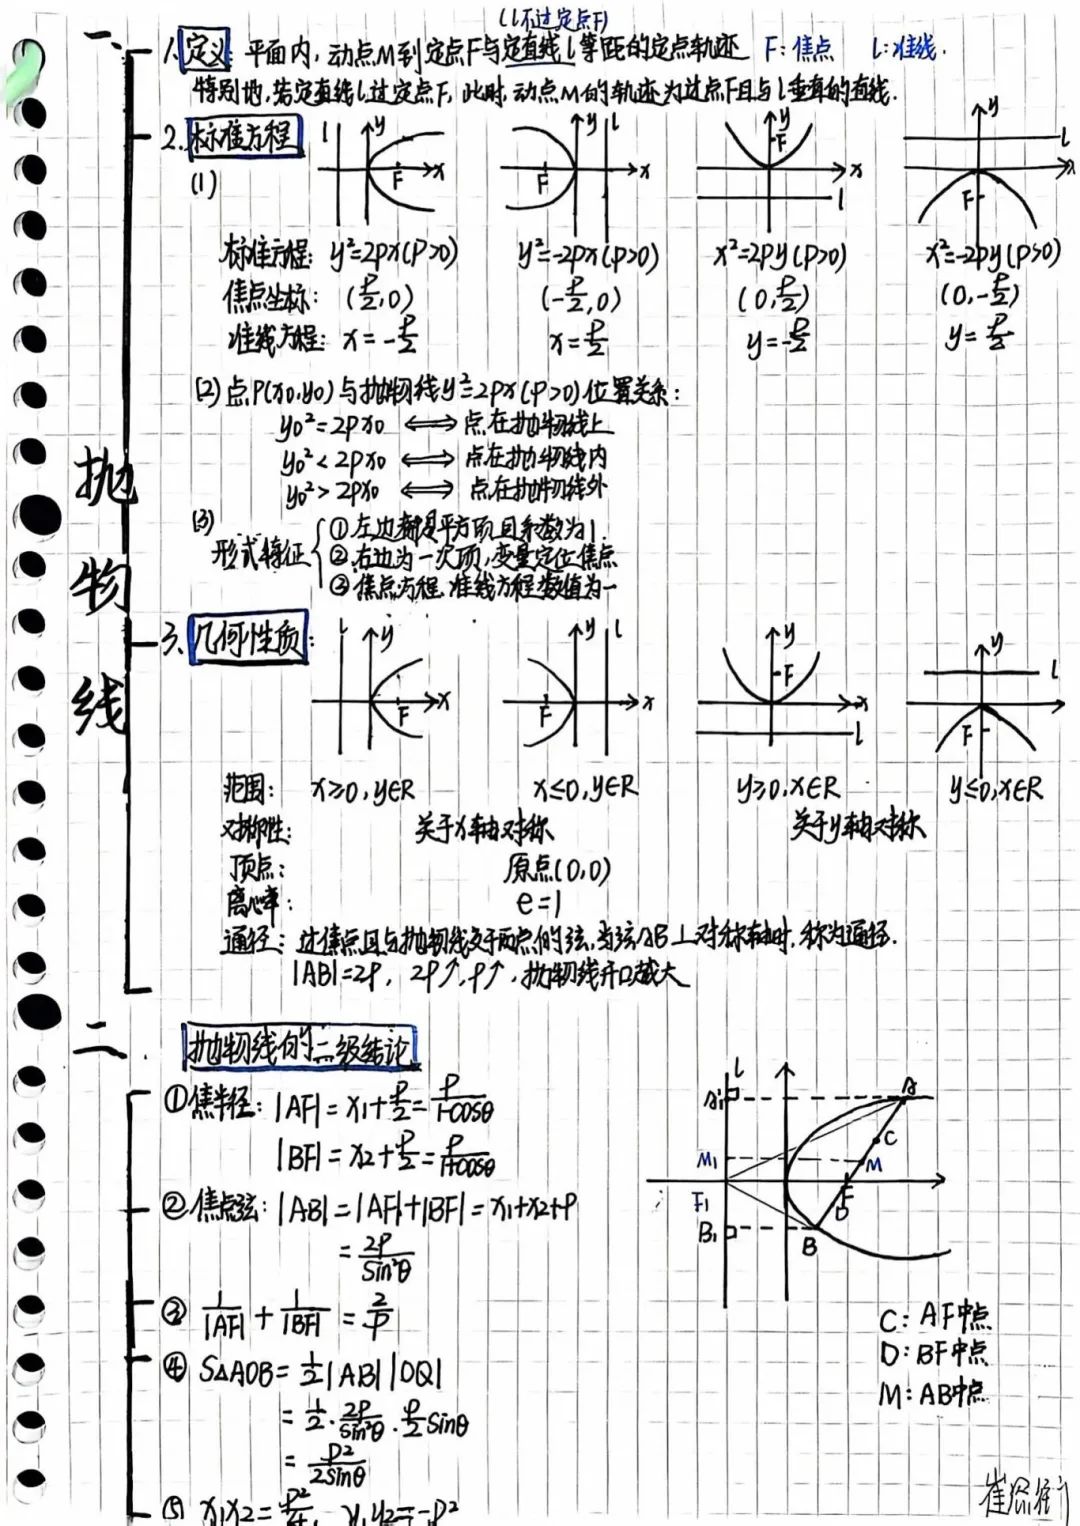 (l不过定点F)
一、1.定义：平面内，动点M到定点F与定直线l等距的定点轨迹 F:焦点 l:准线.
特别地,若定直线l过定点F,此时,动点M的轨迹为过点F且与l垂直的直线.
2.标准方程
(1)
l y F x
y l F x
y F x l
y l x F
标准方程: y²=2px(p>0) y²=-2px(p>0) x²=2py(p>0) x²=-2py(p>0)
焦点坐标: (p/2,0) (-p/2,0) (0,p/2) (0,-p/2)
准线方程: x=-p/2 x=p/2 y=-p/2 y=p/2
(2)点P(x0,y0)与抛物线y²=2px(p>0)位置关系:
y0²=2px0 ⟺ 点在抛物线上
y0²<2px0 ⟺ 点在抛物线内
y0²>2px0 ⟺ 点在抛物线外
(3)
形式特征
①左边都是平方项且系数为1.
②右边为一次项,变量定位焦点
③焦点方程,准线方程数值为一
抛物线
3.几何性质:
l y F x
y l F x
y F x l
y l F
范围: x≥0,y∈R x≤0,y∈R y≥0,x∈R y≤0,x∈R
对称性: 关于x轴对称 关于y轴对称
顶点: 原点(0,0)
离心率: e=1
通径: 过焦点且与抛物线交于两点的弦,当弦AB⊥对称轴时,称为通径.
|AB|=2p, 2p↑,p↑,抛物线开口越大
二、抛物线的二级结论
①焦半径: |AF|=x1+p/2=p/(1-cosθ)
|BF|=x2+p/2=p/(1+cosθ)
②焦点弦: |AB|=|AF|+|BF|=x1+x2+p
=2p/sin²θ
③ 1/|AF|+1/|BF|=2/p
④ S△AOB=1/2|AB||OQ|
=1/2·2p/sin²θ·p/2sinθ
=p²/2sinθ
⑤ x1x2=p²/4, y1y2=-p²
l
A1 A
C
M1 M
F1 F
D
B1 B
C: AF中点
D: BF中点
M: AB中点